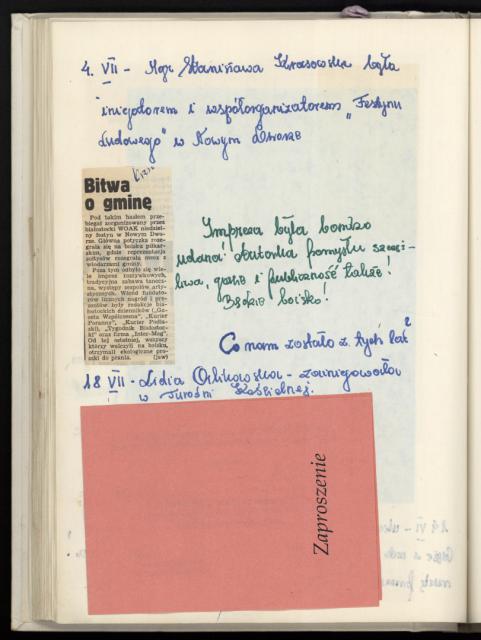 4. VII - Mgr Stanisława Krasowska była
inicjatorem i współorganizatorem "Festynu
Ludowego" w Nowym Dworze
Bitwa
o gminę
Pod takim hasłem prze-
biegał zorganizowany przez
białostocki WOAK niedziel-
ny festyn w Nowym Dwo-
rze. Główna potyczka roze-
grała się na boisku piłkar-
skim, gdzie reprezentacja
sołtysów rozegrała mecz z
włodarzami gminy.
Poza tym odbyło się wie-
le imprez rozrywkowych,
tradycyjna zabawa tanecz-
na, występy zespołów arty-
stycznych. Wśród fundato-
rów licznych nagród i pre-
zentów były redakcje bia-
łostockich dzienników („Ga-
zeta Współczesna", „Kurier
Poranny", „Kurier Podla-
ski", „Tygodnik Białostoc-
ki" oraz firma „Inter-Mag".
Od tej ostatniej, wszyscy
którzy walczyli na boisku,
otrzymali ekologiczne pro-
szki do prania. (jaw)
Impreza była bardzo
udana! Autorka pomysłu szczęś-
liwa, goście i publiczność także!
Będzie boisko!
Co nam zostało z tych lat?
18 VII - Lidia Orlikowska - zawiegowała
w Turośni Kościelnej.
Zaproszenie